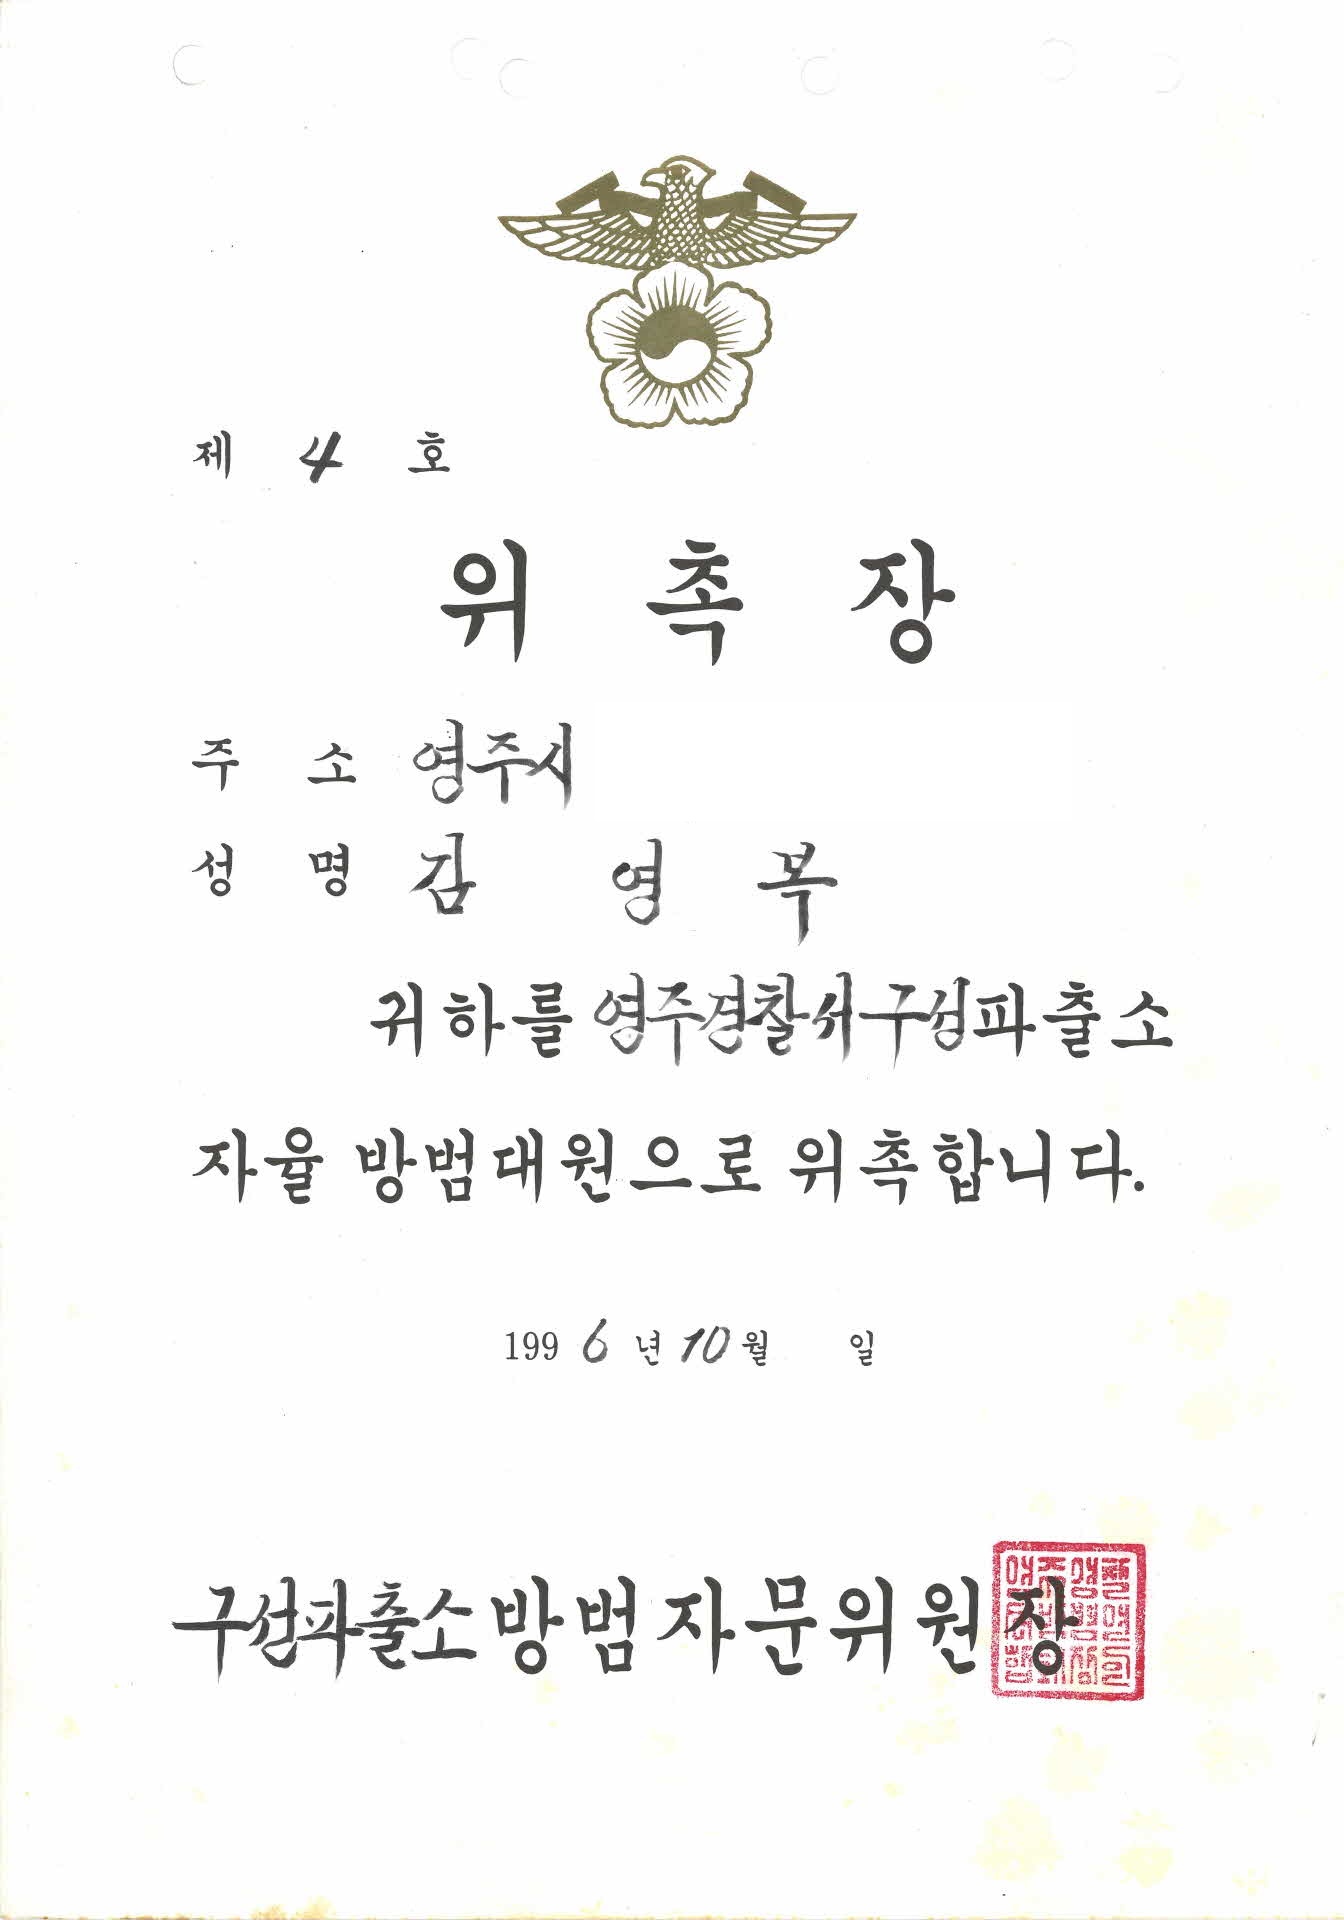 제 4 호
위 촉 장
주 소 영주시
성 명 김 영 복
귀하를 영주경찰서구성파출소
자율 방범대원으로 위촉합니다.
1996년 10월 일
구성파출소방범자문위원장